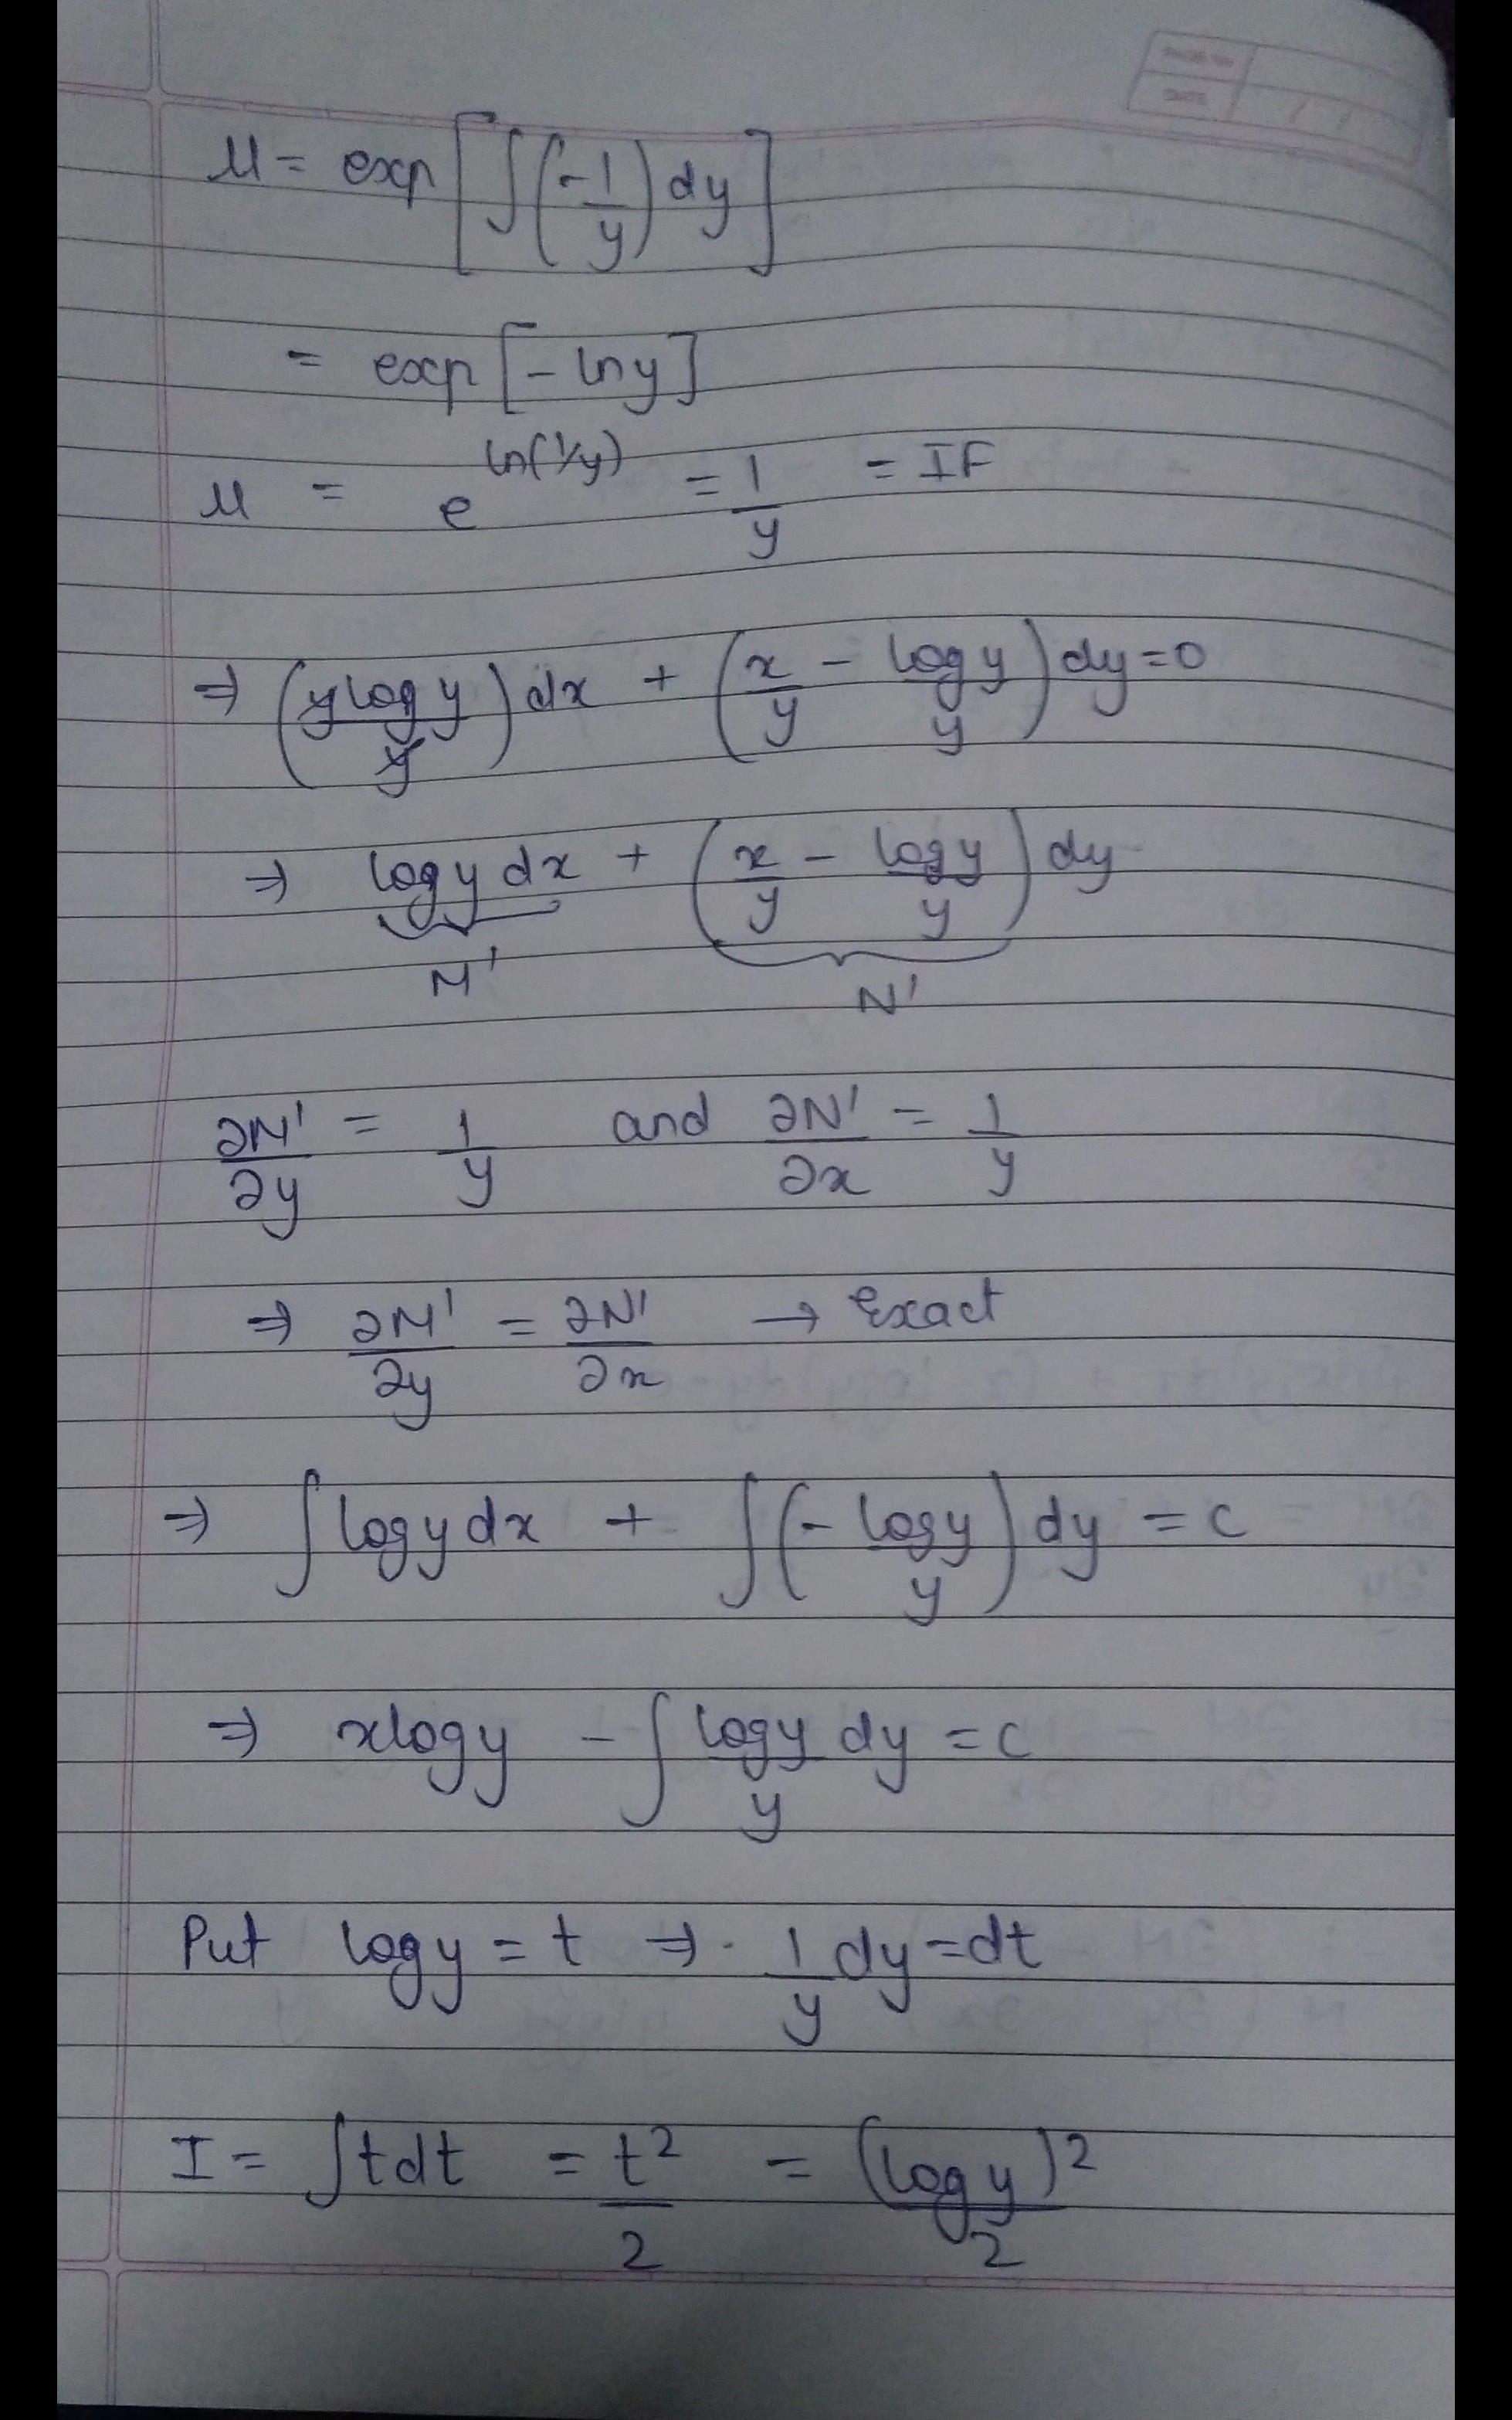 μ = exp[∫(-1/y)dy]
= exp[-ln y]
μ = e^ln(1/y) = 1/y = IF
⇒ (y log y/y)dx + (x/y - log y/y)dy = 0
⇒ log y dx + (x/y - log y/y)dy
M' N'
∂M'/∂y = 1/y and ∂N'/∂x = 1/y
⇒ ∂M'/∂y = ∂N'/∂x → Exact
⇒ ∫log y dx + ∫(-log y/y)dy = c
⇒ x log y - ∫log y/y dy = c
Put log y = t ⇒ 1/y dy = dt
I = ∫t dt = t²/2 = (log y)²/2